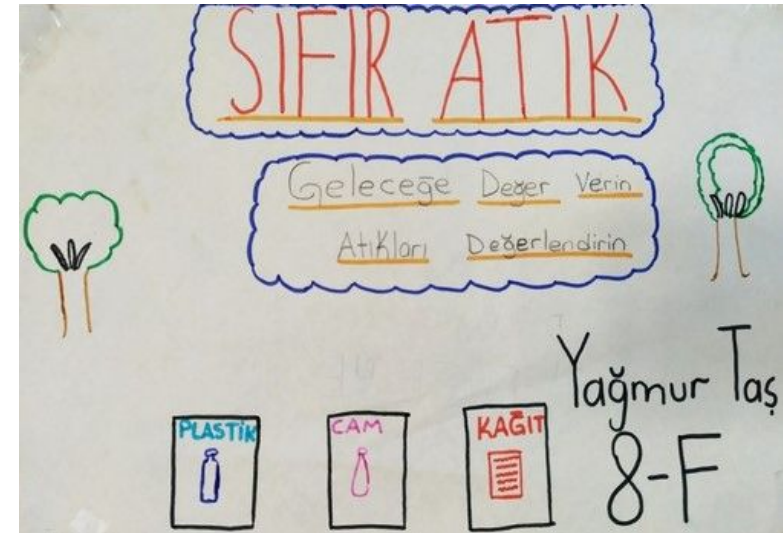 SIFIR ATIK
Geleceğe Değer Verin
Atıkları Değerlendirin
Yağmur Taş
8-F
PLASTİK
CAM
KAĞIT